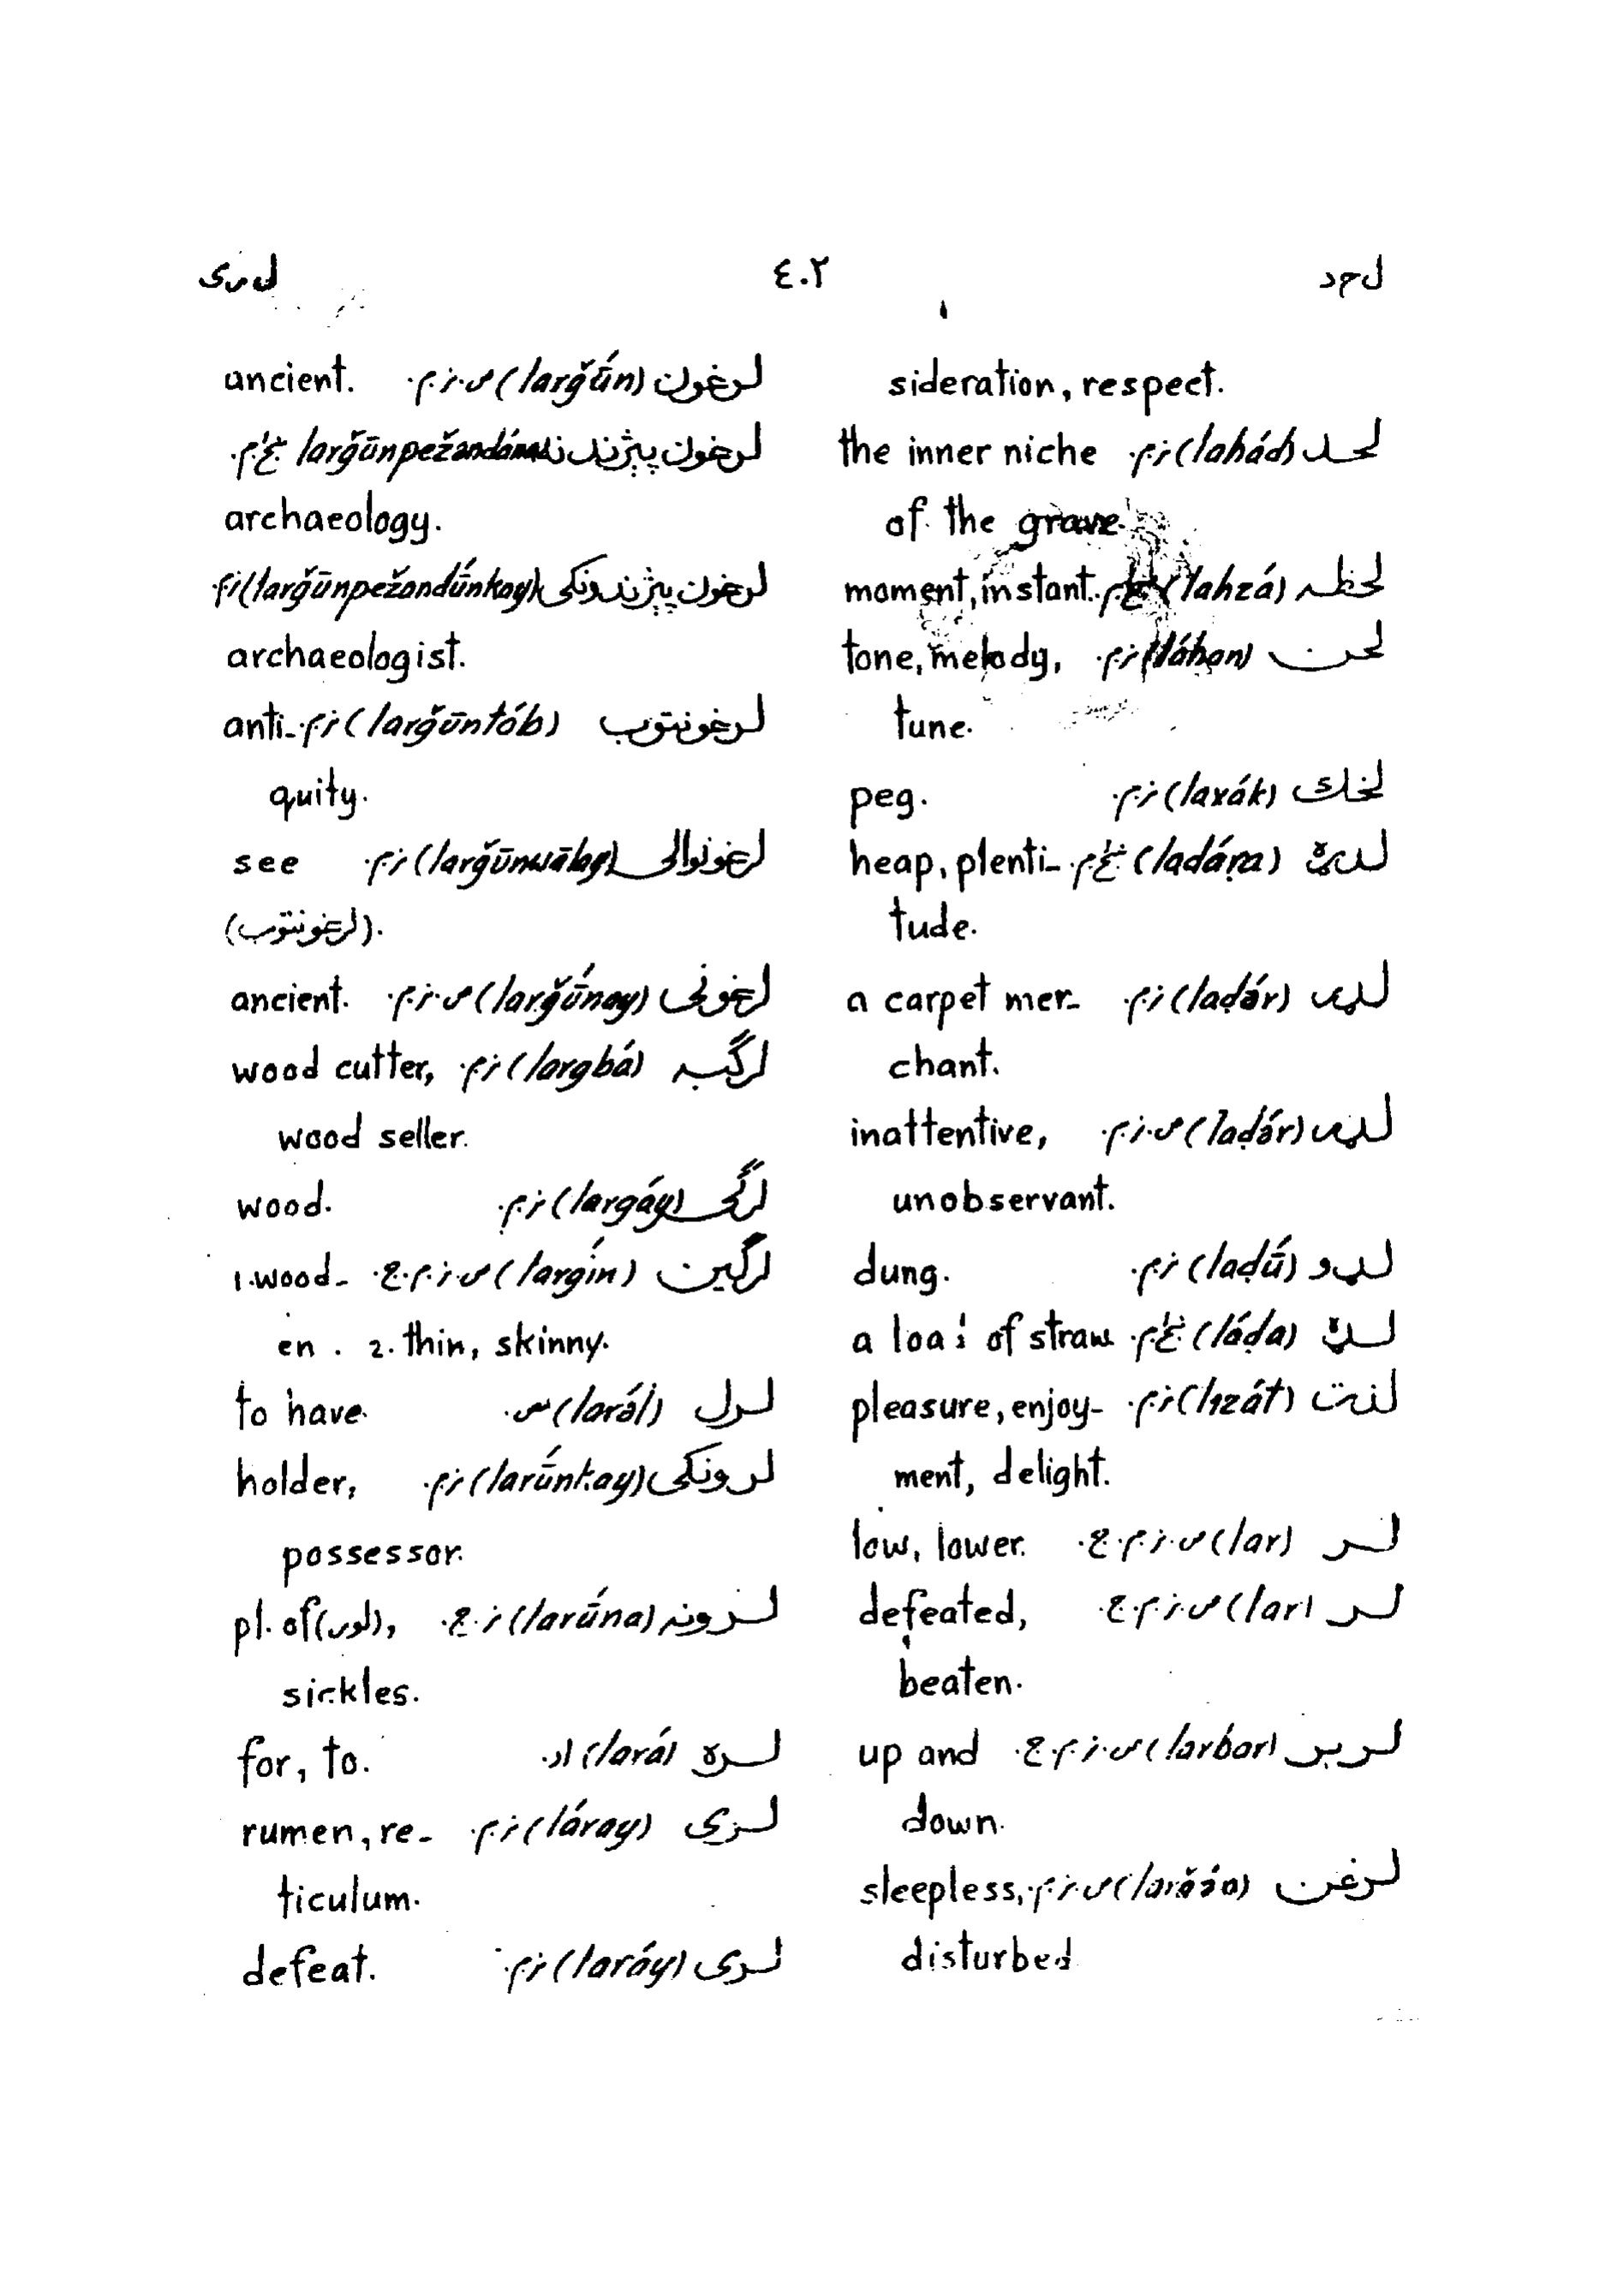 لحد ٤٠٢ لری
sideration, respect.
لحد (lahád) ز.م. the inner niche
of the grave.
لحظه (lahzá) ښځ.م. moment, instant.
لحن (láhan) ز.م. tone, melody,
tune.
لخک (laxák) ز.م. peg.
لدړه (ladáṛa) ښځ.م. heap, plenti-
tude.
لډر (laḍə́r) ز.م. a carpet mer-
chant.
لډر (laḍə́r) ص.ز.م. inattentive,
unobservant.
لډو (laḍū́) ز.م. dung.
لډه (láḍa) ښځ.م. a load of straw
لذت (lɪzát) ز.م. pleasure, enjoy-
ment, delight.
لر (lar) ص.ز.م.ج. low, lower.
لر (lar) ص.ز.م.ج. defeated,
beaten.
لربر (larbar) ص.ز.م.ج. up and
down.
لرغن (larğə́n) ص.ز.م. sleepless,
disturbed
لرغون (larğū́n) ص.ز.م. ancient.
لرغون پېژندنه larğūnpežandə́na ښځ.م.
archaeology.
لرغون پېژندونکی (larğūnpežandū́nkay) ز.م.
archaeologist.
لرغونتوب (larğūntób) ز.م. anti-
quity.
لرغونوالی (larğūnwālay) ز.م. see
(لرغونتوب).
لرغونی (larğū́nay) ص.ز.م. ancient.
لرګبه (largbá) ز.م. wood cutter,
wood seller.
لرګی (largáy) ز.م. wood.
لرګین (largín) ص.ز.م.ج. 1. wood-
en. 2. thin, skinny.
لرل (larə́l) مص. to have.
لرونکی (larū́nkay) ز.م. holder,
possessor.
لرونه (larū́na) ز.ج. pl. of (لور),
sickles.
لره (lará) اد. for, to.
لری (láray) ز.م. rumen, re-
ticulum.
لری (laráy) ز.م. defeat.